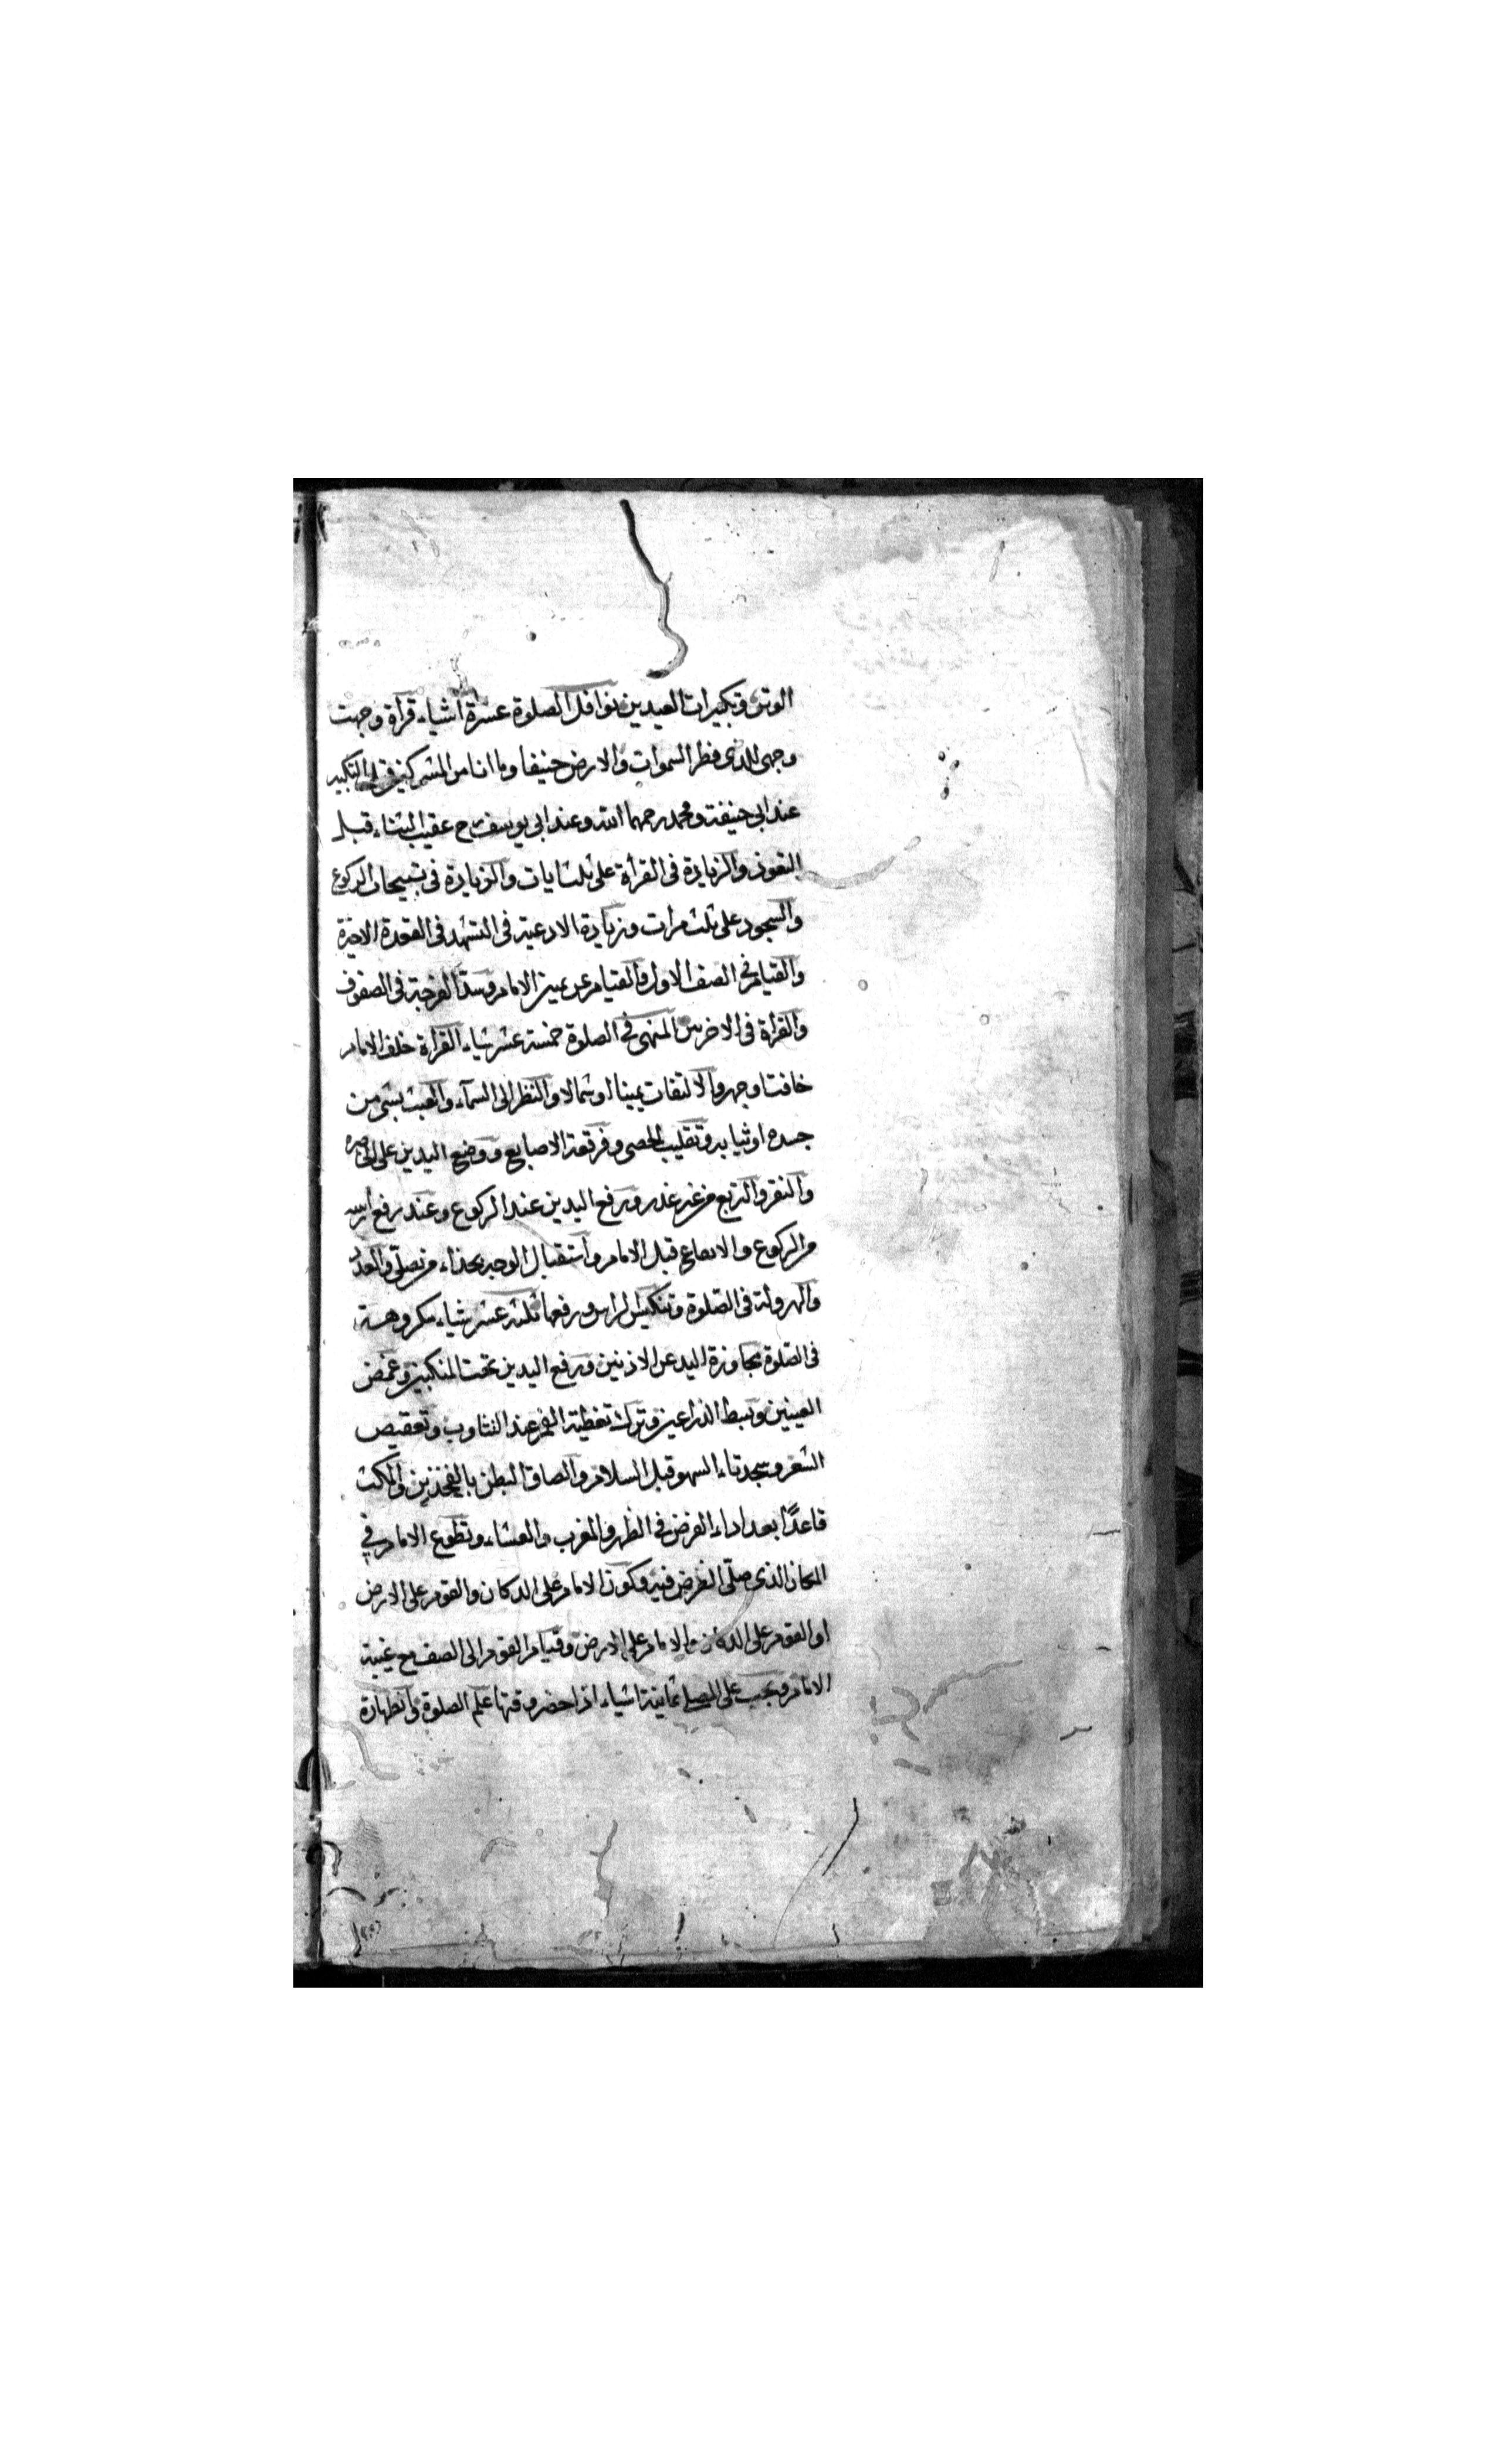 الوتر وتكبيرات العيدين نوافل الصلوة عشرة اشياء قرأة وجهت
وجهى للذى فطر السموات والارض حنيفا وما انا من المشركين قبل التكبير
عند ابى حنيفة ومحمد رحمهما الله وعند ابى يوسف رح عقيب الثناء قبل
التعوذ والزيادة فى القرأة على ثلث ايات والزيادة فى تسبيحات الركوع
والسجود على ثلث مرات وزيادة الادعية فى التشهد فى القعدة الاخيرة
والقيام فى الصف الاول والقيام عن يمين الامام وسد الفرجة فى الصفوف
والقرأة فى الاخريين المنهى فى الصلوة خمسة عشر شياء القرأة خلف الامام
خافتا وجهرو الالتفات يمينا او شمالا والنظر الى السمآء والعبث بشى من
جسده او ثيابه وتقليب الحصى وفرقعة الاصابع ووضع اليدين على الخاصره
والنقر والتربع من غير عذر ورفع اليدين عند الركوع وعند رفع راسه
من الركوع والا قبل الامام واستقبال الوجه بحذاء من يصلّى والعدّ
والهرولة فى الصّلوة وتنكيس الراس ورفعها ثلثة عشر شياء مكروهة
فى الصّلوة مجاوزة اليد عن الاذنين ورفع اليدين تحت المنكبين وغمض
العينين وبسط الذراعين وترك تغطية الفم عند التثاوب وتعقيص
الشعر وسجدتاء السهو قبل السلام والصاق البطن بالفخذين والمكث
قاعدًا بعد اداء الفرض فى الظهر والمغرب والعشاء وتطوع الامام فى
المكان الذى صلّى الفرض فيه وكون الامام على الدكان والقوم على الارض
او القوم على الدكان والامام على الارض وقيام القوم الى الصف مع غيبة
الامام ويجب على المصلى ثمانية اشياء اذا حضر وقتها علم الصلوة والطهارة